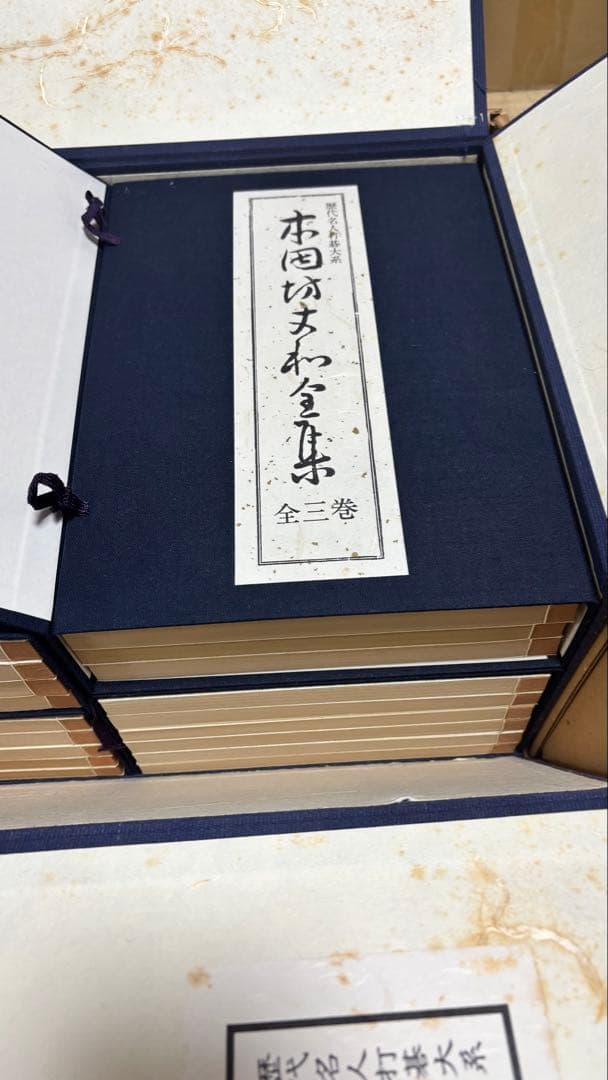 歴代名人打碁大系
本因坊丈和全集
全三巻
歴代名人打碁大系